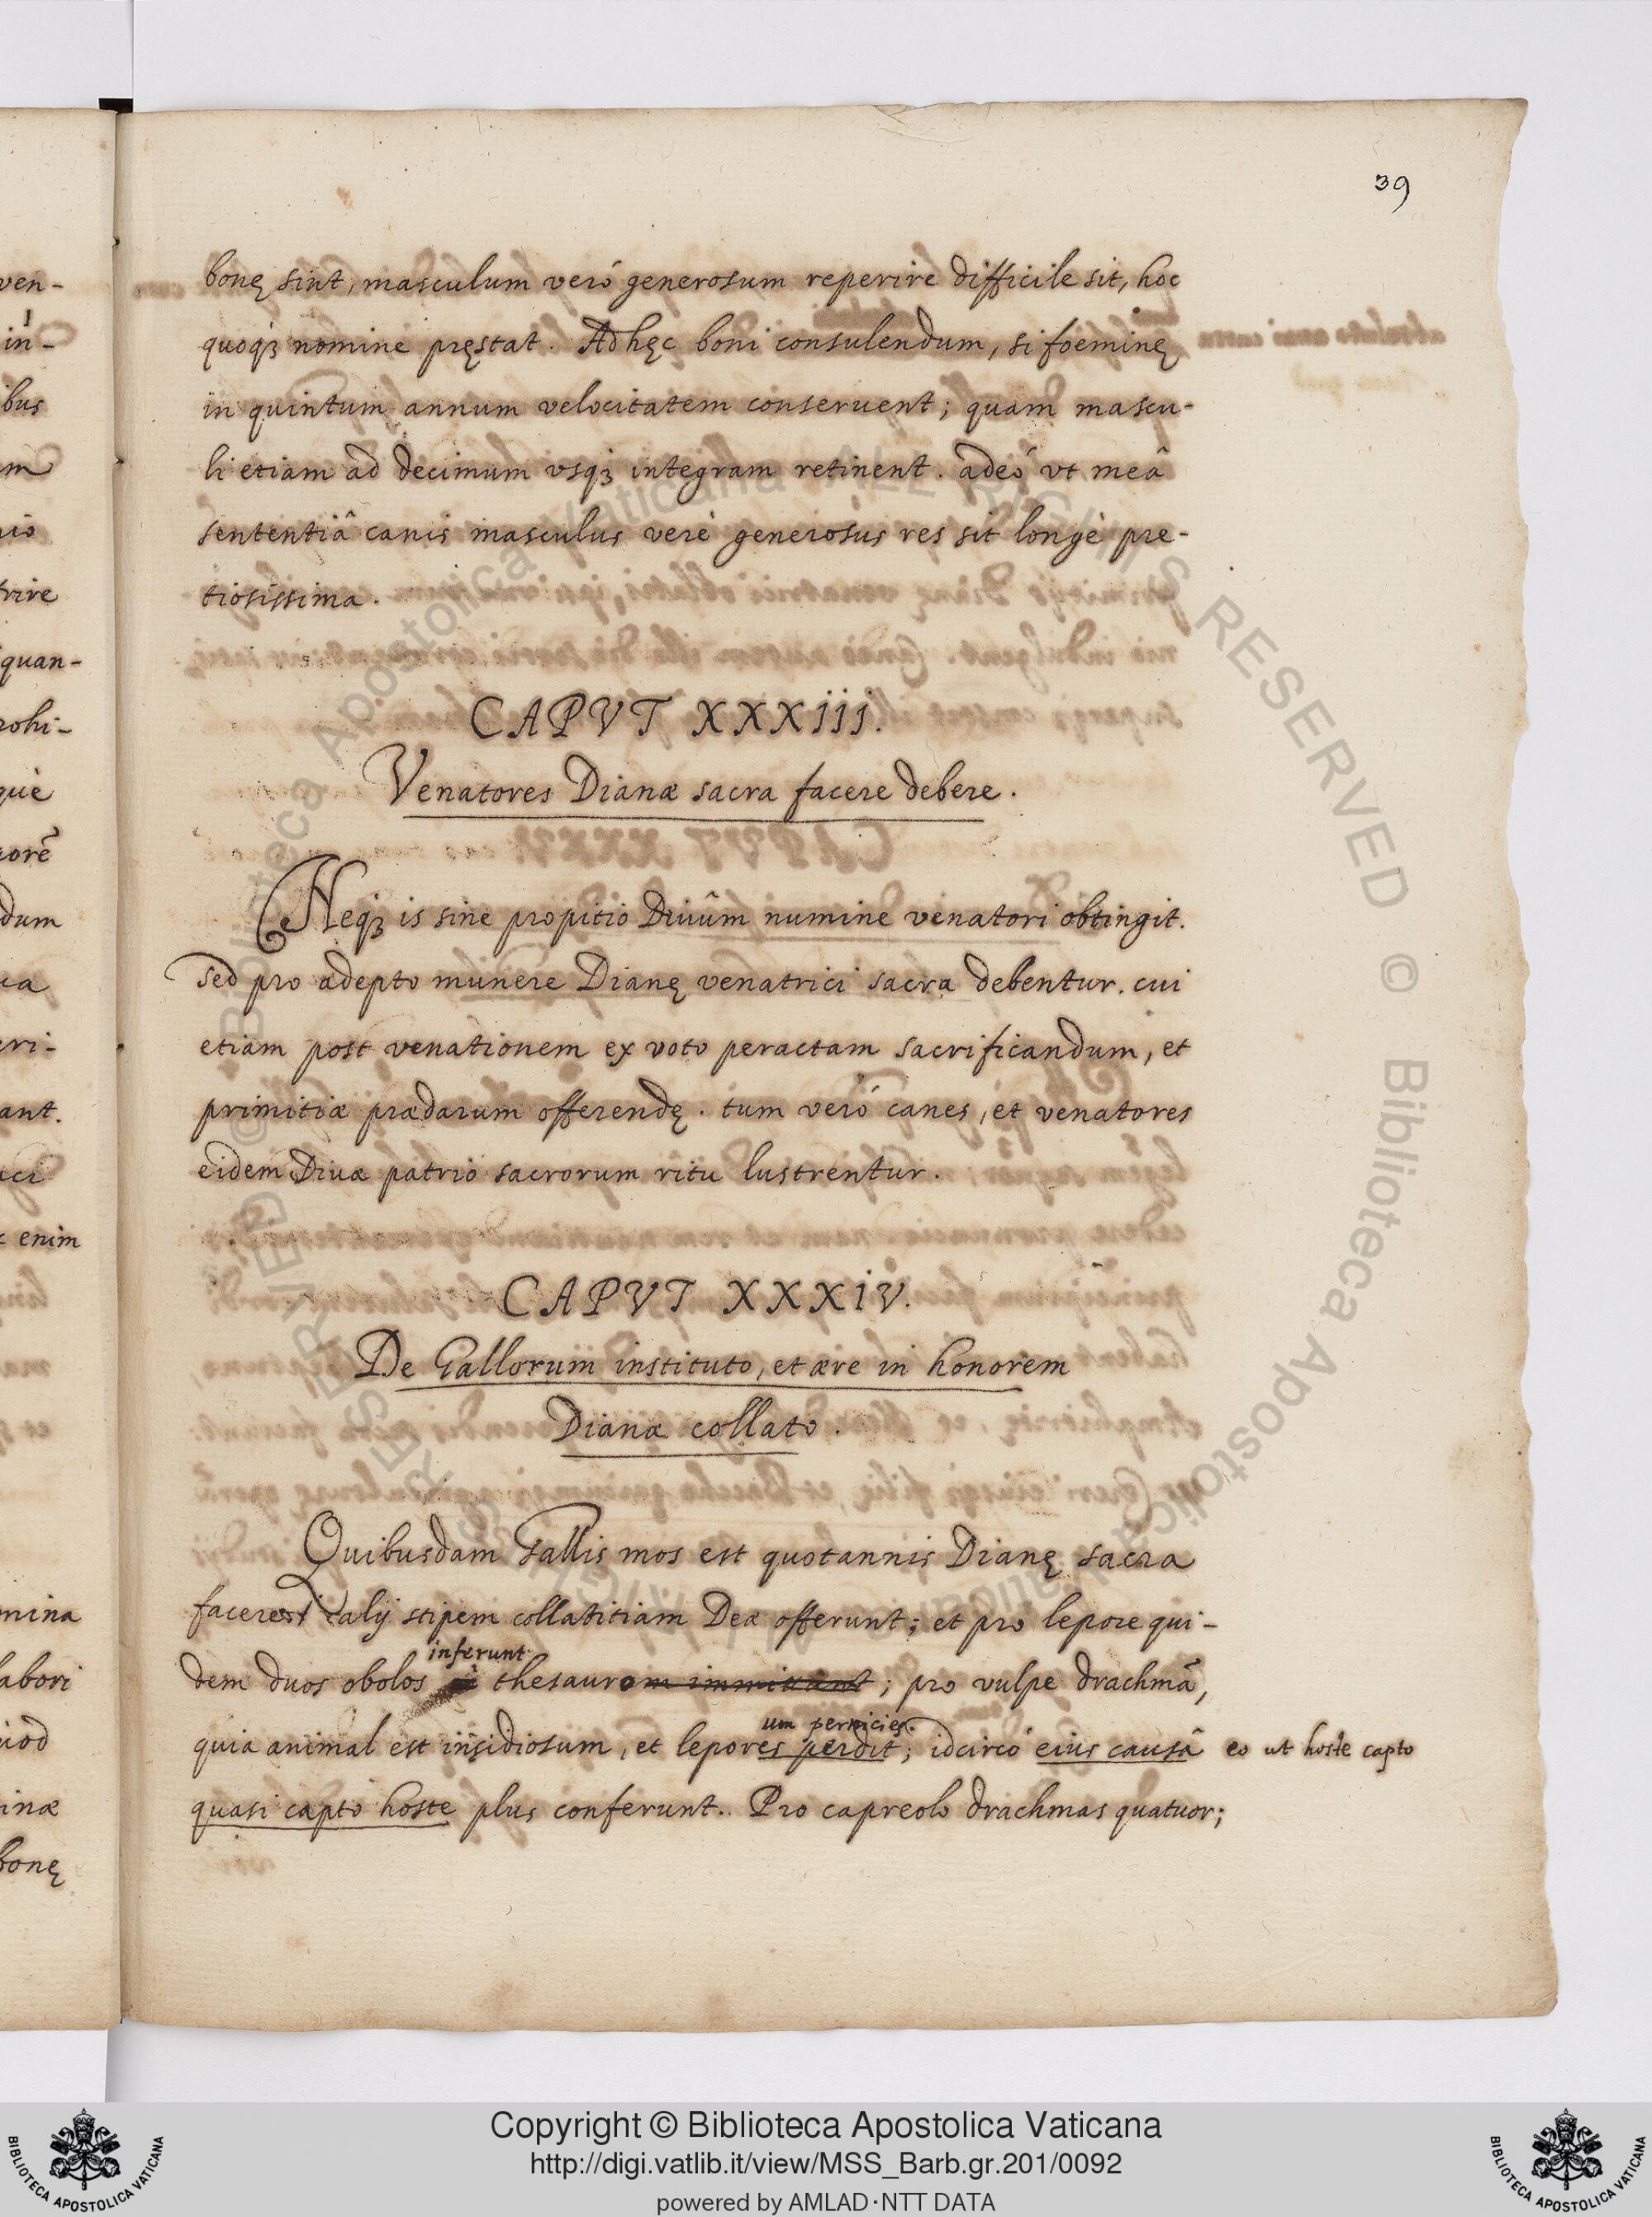 39
bonę sint, masculum verò generosum reperire difficile sit, hoc
quoqꝫ nomine pręstat. Ad hęc boni consulendum, si foeminę
in quintum annum velocitatem conseruent; quam mascu-
li etiam ad decimum vsqꝫ integram retinent. adeò vt meâ
sententiâ canis masculus verè generosus res sit longè pre-
tiosissima.
CAPVT XXXiii.
Venatores Dianæ sacra facere debere.
Neqꝫ is sine propitio Diuûm numine venatori obtingit.
sed pro adepto munere Dianę venatrici sacra debentur. cui
etiam post venationem ex voto peractam sacrificandum, et
primitiæ prædarum offerendę. tum verò canes, et venatores
eidem Diuæ patrio sacrorum ritu lustrentur.
CAPVT XXXiV.
De Gallorum instituto, et ære in honorem
Dianæ collato.
Quibusdam Gallis mos est quotannis Dianę sacra
facere alij stipem collatitiam Deæ offerunt; et pro lepore qui-
inferunt
dem duos obolos thesaurom immittant; pro vulpe drachmā,
um pernicies.
quia animal est insidiosum, et lepores perdit; idcircò eius causâ eo ut hoste capto
quasi capto hoste plus conferunt. Pro capreolo drachmas quatuor;
ven-
in-
bus
m
rire
quan-
rohi-
què
orē
dum
eri-
ant.
enim
mina
labori
uod
inæ
bonę
Copyright © Biblioteca Apostolica Vaticana
http://digi.vatlib.it/view/MSS_Barb.gr.201/0092
powered by AMLAD·NTT DATA
BIBLIOTECA APOSTOLICA VATICANA
BIBLIOTECA APOSTOLICA VATICANA
© Biblioteca Apostolica Vaticana ALL RIGHTS RESERVED
© Biblioteca Apostolica Vaticana ALL RIGHTS RESERVED